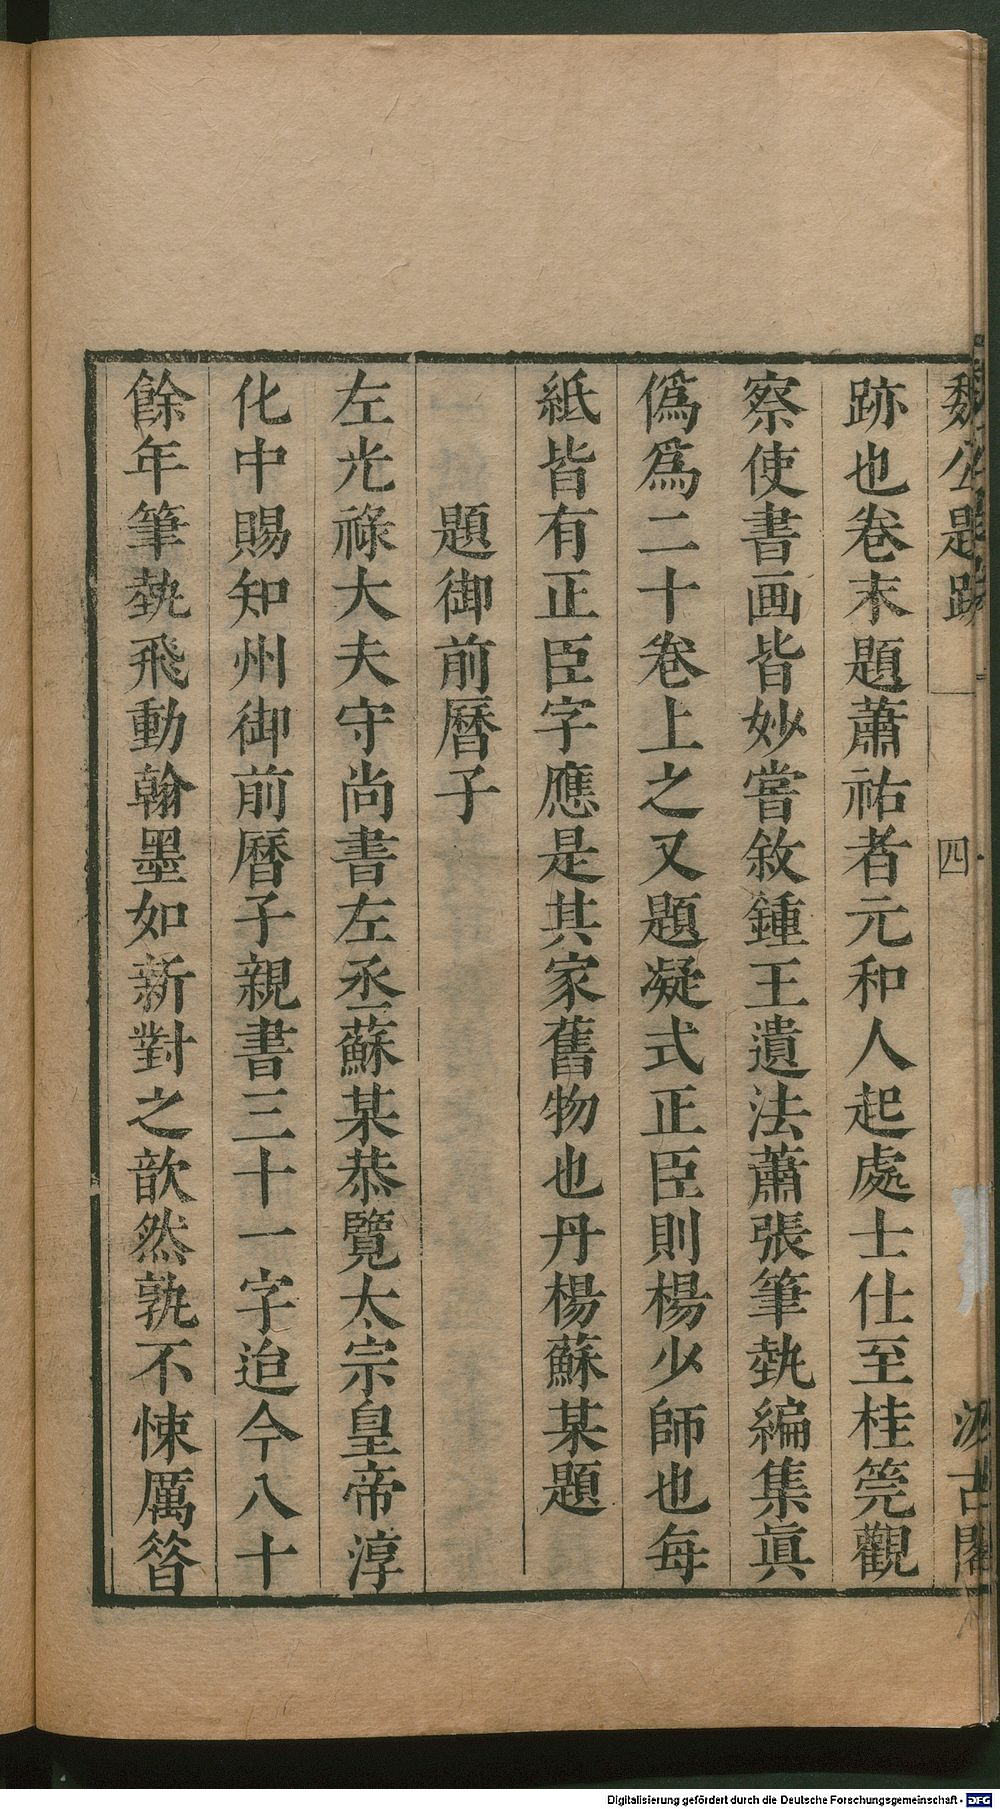 魏公題跋
四
汲古閣
跡也卷末題蕭祐者元和人起處士仕至桂筦觀
察使書画皆妙嘗敘鍾王遺法蕭張筆埶編集眞
僞爲二十卷上之又題凝式正臣則楊少師也每
紙皆有正臣字應是其家舊物也丹楊蘇某題
題御前曆子
左光祿大夫守尚書左丞蘇某恭覽太宗皇帝淳
化中賜知州御前曆子親書三十一字迨今八十
餘年筆埶飛動翰墨如新對之歆然孰不悚厲簪
Digitalisierung gefördert durch die Deutsche Forschungsgemeinschaft - DFG